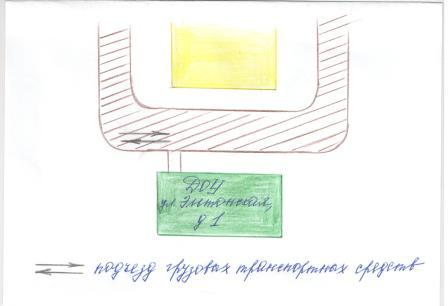 ДОУ
ул Эльтонская,
д 1
подъезд грузовых транспортных средств